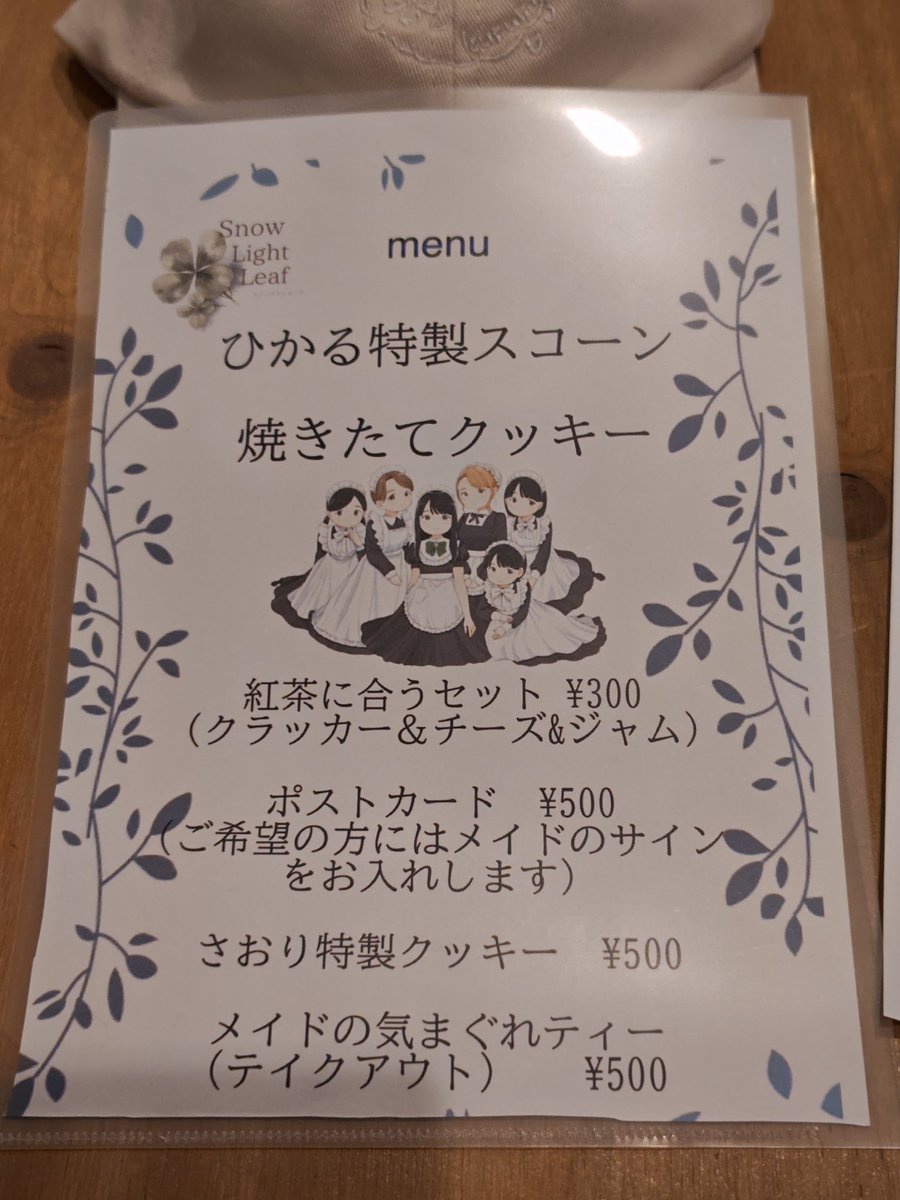 Snow
Light
Leaf
menu
ひかる特製スコーン
焼きたてクッキー
紅茶に合うセット ¥300
（クラッカー＆チーズ&ジャム）
ポストカード ¥500
（ご希望の方にはメイドのサイン
をお入れします）
さおり特製クッキー ¥500
メイドの気まぐれティー
（テイクアウト） ¥500